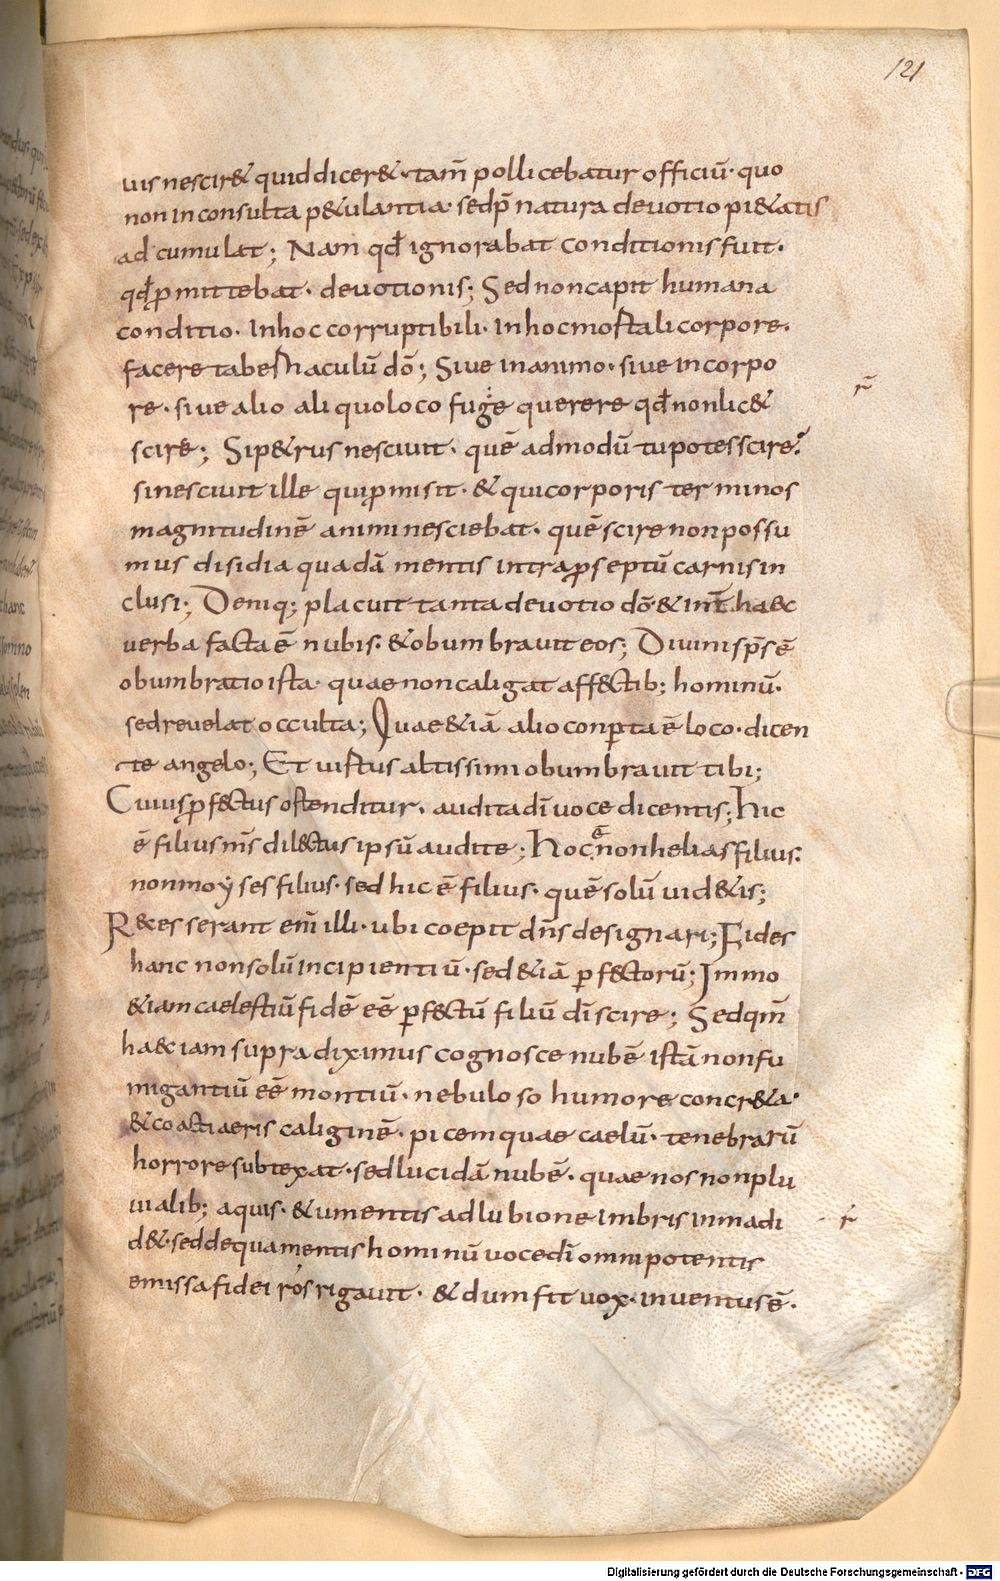 121
uis nescir& quid dicer&· tam̄ pollicebatur officiū· quo
non inconsulta p&ulantia· sed p̄natura deuotio pi&atis
adcumulat; Nam qđ ignorabat conditionis fuit·
qđ ꝓmittebat· deuotionis; Sed non capit humana
conditio· In hoc corruptibili· In hoc mortali corpore·
facere tabernaculū dō; Siue in animo· siue in corpo
re· siue alio aliquo loco fuge querere qđ non lic&
scire; Si p&rus nesciuit· quē admodū tu potes scire?
si nesciuit ille qui ꝓmisit· & qui corporis terminos
magnitudinē animi nesciebat· quē scire non possu
mus disidia quadā mentis intra ꝓseptū carnis in
clusi; Deniq; placuit tanta deuotio dō· & int̄ haec
uerba facta ē nubis· & obumbrauit eos; Diuini sp̄s ē
obumbratio ista· quae non caligat aff&ctib; hominū·
sed reuelat occulta; Quae &iā alio conꝑta ē loco· dicen
te angelo; Et uirtus altissimi obumbrauit tibi;
Cuius ꝓf&ctus ostenditur· audita dī uoce dicentis; hic
ē filius ms̄ dil&ctus ipsū audite; Hoc ē non helias filius·
non moẏses filius· sed hic ē filius· quē solū uid&is;
R&cesserant em̄ illi· ubi coepit dn̄s designari; Fides
hanc non solū incipientiū· sed &iā ꝑf&ctorū; Immo
&iam caelestiū fidē eē ꝑf&ctū filiū dī scire; Sed qm̄
haec iam supra diximus cognosce nubē istā non fu
migantiū eē montiū· nebuloso humore concr&a·
& coacti aeris caliginē· picem quae caelū· tenebrarū
horrore subtexat· sed lucidā nubē· quae nos non plu
uialib; aquis· & umentis adlubione imbris inmadi
d&· sed de qua mentis hominū uoce dī omnipotentis
emissa fidei ros rigauit· & dum fit uox· inuentus ē·
Digitalisierung gefördert durch die Deutsche Forschungsgemeinschaft - DFG